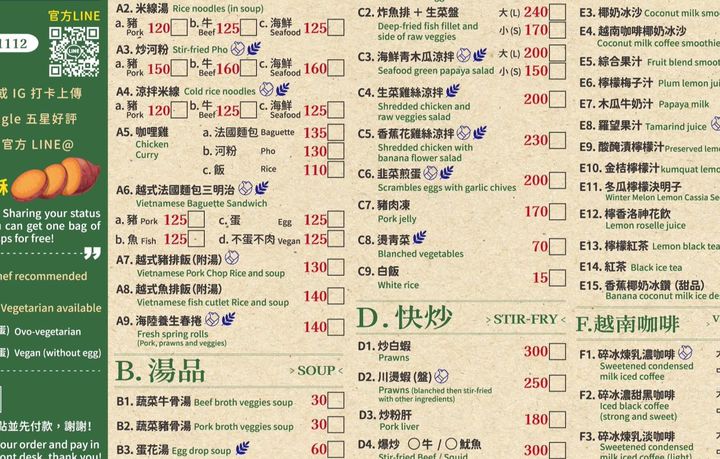 官方LINE
1112
或 IG 打卡上傳
gle 五星好評
官方 LINE@
Sharing your status
u can get one bag of
ps for free!
ef recommended
Vegetarian available
蛋) Ovo-vegetarian
蛋) Vegan (without egg)
點並先付款，謝謝!
our order and pay in
ont desk, thank you!
A2. 米線湯 Rice noodles (in soup)
a. 豬 Pork 120 b. 牛 Beef 125 c. 海鮮 Seafood 125
A3. 炒河粉 Stir-fried Pho
a. 豬 Pork 150 b. 牛 Beef 160 c. 海鮮 Seafood 160
A4. 涼拌米線 Cold rice noodles
a. 豬 Pork 120 b. 牛 Beef 125 c. 海鮮 Seafood 125
A5. 咖哩雞 a. 法國麵包 Baguette 135
Chicken Curry b. 河粉 Pho 130
c. 飯 Rice 110
A6. 越式法國麵包三明治
Vietnamese Baguette Sandwich
a. 豬 Pork 125 c. 蛋 Egg 125
b. 魚 Fish 125 d. 不蛋不肉 Vegan 125
A7. 越式豬排飯(附湯) 130
Vietnamese Pork Chop Rice and soup
A8. 越式魚排飯(附湯) 140
Vietnamese fish cutlet Rice and soup
A9. 海陸養生春捲 140
Fresh spring rolls
(Pork, prawns and veggies)
B. 湯品 > SOUP <
B1. 蔬菜牛骨湯 Beef broth veggies soup 30
B2. 蔬菜豬骨湯 Pork broth veggies soup 30
B3. 蛋花湯 Egg drop soup 60
C2. 炸魚排 + 生菜盤 大(L) 240
Deep-fried fish fillet and
side of raw veggies 小(S) 170
C3. 海鮮青木瓜涼拌 大(L) 200
Seafood green papaya salad 小(S) 150
C4. 生菜雞絲涼拌 200
Shredded chicken and
raw veggies salad
C5. 香蕉花雞絲涼拌 230
Shredded chicken with
banana flower salad
C6. 韭菜煎蛋 200
Scrambles eggs with garlic chives
C7. 豬肉凍 170
Pork jelly
C8. 燙青菜 70
Blanched vegetables
C9. 白飯 15
White rice
D. 快炒 > STIR-FRY <
D1. 炒白蝦 300
Prawns
D2. 川燙蝦 (盤) 250
Prawns (blanched then stir-fried
with other ingredients)
D3. 炒粉肝 180
Pork liver
D4. 爆炒 〇牛 / 〇魷魚 300
Stir-fried Beef / Squid
E3. 椰奶冰沙 Coconut milk smo
E4. 越南咖啡椰奶冰沙
Coconut milk coffee smoothie
E5. 綜合果汁 Fruit blend smooth
E6. 檸檬梅子汁 Plum lemon jui
E7. 木瓜牛奶汁 Papaya milk
E8. 羅望果汁 Tamarind juice
E9. 酸醃漬檸檬汁 Preserved lemo
E10. 金桔檸檬汁 kumquat lemon
E11. 冬瓜檸檬決明子
Winter Melon Lemon Cassia See
E12. 檸香洛神花飲
Lemon roselle juice
E13. 檸檬紅茶 Lemon black tea
E14. 紅茶 Black ice tea
E15. 香蕉椰奶冰鑽 (甜品)
Banana coconut milk ice de
F. 越南咖啡 > V
F1. 碎冰煉乳濃咖啡
Sweetened condensed
milk iced coffee
F2. 碎冰濃甜黑咖啡
Iced black coffee
(strong and sweet)
F3. 碎冰煉乳淡咖啡
Sweetened condensed
milk iced coffee (light)